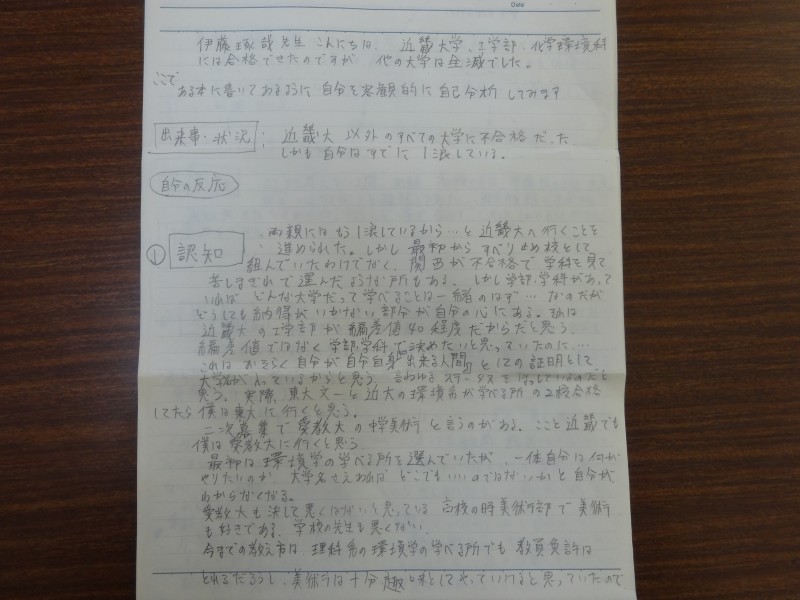 Date
伊藤琢哉先生 こんにちは、 近畿大学、工学部、化学環境科
には合格できたのですが 他の大学は全滅でした。
ここで
ある本に書いてあるように 自分を客観的に自己分析 してみます
出来事・状況 : 近畿大 以外のすべての大学に不合格だった
しかも 自分はすでに 1浪している。
自分の反応
① 認知 両親にはもう1浪しているから…と近畿大へ行くことを
進められた。しかし 最初から すべり止め校として
組んでいたわけでなく、関西が不合格で 学科を見て
苦しまぎれで選んだような所もある。しかし学部、学科があって
いれば どんな大学だって学べることは一緒のはず… なのだが
どうしても納得がいかない部分が自分の心にある。私は
近畿大の工学部が偏差値40程度だからだと思う、
偏差値ではなく学部、学科で決めたいと思っていたのに…
これは おそらく自分が自分自身 出来る人間 の証明として
大学 入っているからと思う、言わゆる ステータスを だと
思う。 実際、東大文一と近大の環境系が学べる所の2校合格
してたら僕は東大に行くと思う。
二次募集で愛教大の中学美術 と言うのがある。ここと近畿でも
僕は愛教大に行くと思う
最初は環境学の学べる所を選んでいたが、一体自分は何が
やりたいのか 大学名さえあれば どこでもいいのではないかと自分が
わからなくなる。
愛教大も決して悪くはないと思っている 高校の時美術部で美術
も好きである、学校の先生も悪くない、
今までの考え方は 理科系の環境学の学べる所でも 教員免許は
とれるだろうし、美術は十分趣味としてやっていけると思っていたので